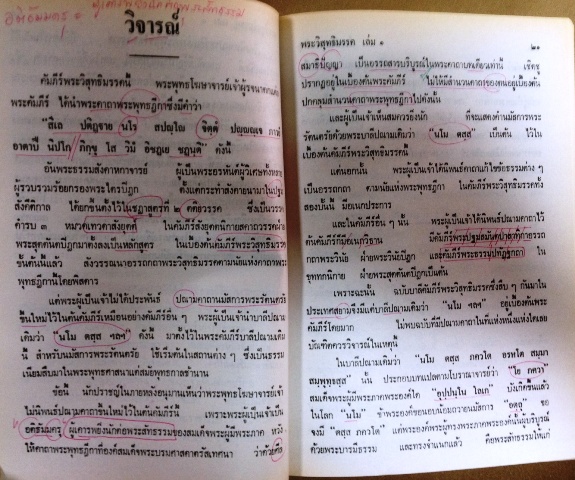 วิจารณ์
คัมภีร์พระวิสุทธิมรรคนี้ พระพุทธโฆษาจารย์เจ้าผู้รจนา
พระคัมภีร์ ได้นำพระคาถาพระพุทธฎีกาซึ่งมีคำว่า
"สีเล ปติฏฺฐาย นโร สปญฺโญ จิตฺตํ ปญฺญญฺจ ภาวยํ
อาตาปี นิปโก ภิกฺขุ โส อิมํ วิชฏเย ชฏนฺติ" ดังนี้
อันพระธรรมสังคาหกาจารย์ ผู้เป็นพระอรหันต์ผู้วิเศษทั้งหลาย
ผู้รวบรวมร้อยกรองพระไตรปิฎก ตั้งแต่กระทำสังคายนามาในปฐม
สังคีติกาล ได้ยกขึ้นตั้งไว้ในชฏาสูตรที่ ๒ ซึ่งเป็นวรรค
คำรบ ๓ หมวดเทวตาสังยุตต์ ในคัมภีร์สังยุตตนิกายสคาถวรรคฝ่าย
พระสุตตันตปิฎกมาตั้งลงเป็นหลักสูตร ในเบื้องต้นคัมภีร์พระวิสุทธิมรรค
ขึ้นต้นนี้แล้ว สังวรรณนาอรรถกถาพระวิสุทธิมรรคตามนัยแห่งคาถาพระ
พุทธฎีกานี้โดยพิสดาร
แต่พระผู้เป็นเจ้าไม่ได้ประพันธ์ ปณามคาถานมัสการพระรัตนตรัย
ขึ้นใหม่ไว้ในต้นคัมภีร์เหมือนอย่างคัมภีร์อื่น ๆ พระผู้เป็นเจ้านำบาลีปณาม
เดิมว่า "นโม ตสฺส ฯลฯ" ดังนี้ มาตั้งไว้ในต้นพระคัมภีร์บาลีปณามเดิม
นี้ สำหรับนมัสการพระรัตนตรัย ใช้เริ่มต้นในสถานต่าง ๆ ซึ่งเป็นธรรม
เนียมสืบมาในพระพุทธศาสนาแต่สมัยพุทธกาลช้านาน
ข้อนี้ นักปราชญ์ในภายหลังอนุมานเห็นว่าพระพุทธโฆษาจารย์เจ้า
ไม่นิพนธ์ปณามคาถาขึ้นใหม่ไว้ในต้นคัมภีร์นี้ เพราะพระผู้เป็นเจ้าเป็น
อคธัมมครุ ผู้เคารพยิ่งนักต่อพระสัทธรรมของสมเด็จพระผู้มีพระภาค หวัง
ให้คาถาพระพุทธฎีกาที่องค์สมเด็จพระบรมศาสดาตรัสเทศนา ว่าด้วยศีล
พระวิสุทธิมรรค เล่ม ๑
๒๑
สมาธิปัญญา เป็นอรรถสารบริบูรณ์ในพระคาถาบทเดียวเท่านี้ เชิดชู
ปรากฏอยู่ในเบื้องต้นพระคัมภีร์ ไม่ให้มีสำนวนคาถาของตนอยู่เบื้องต้น
ปกคลุมสำนวนคาถาพระพุทธฎีกาไปดังนั้น
และผู้เป็นเจ้าเห็นสมควรอยู่อีก ที่จะแสดงต้นนมัสการพระ
รัตนตรัยด้วยพระบาลีปณามเดิมว่า "นโม ตสฺส" เป็นต้น ไว้ใน
เบื้องต้นคัมภีร์พระวิสุทธิมรรคนี้
แต่นอกนั้น พระผู้เป็นเจ้าได้นิพนธ์คาถาแก้ไขข้อธรรมต่าง ๆ
เป็นอรรถกถา ตามนัยแห่งพระพุทธฎีกา ในคัมภีร์พระวิสุทธิมรรคทั้ง
สองบั้นนี้ มีอเนกประการ
และในคัมภีร์อื่น ๆ นั้น พระผู้เป็นเจ้าได้นิพนธ์ปณามคาถาไว้
ต้นคัมภีร์ก็มีอเนกวิธาน มีคัมภีร์พระปฐมสมันตปาสาทิกาอรรถ
กถาพระวินัย ฝ่ายพระวินัยปิฎก และคัมภีร์พระธรรมปทัฏฐกถา ใน
ขุททกนิกาย ฝ่ายพระสุตตันตปิฎกเป็นต้น
เพราะฉะนั้น ฉบับบาลีคัมภีร์พระวิสุทธิมรรคซึ่งสืบ ๆ กันมาใน
ประเทศสยามจึงมีแต่บาลีปณามเดิมว่า "นโม ฯลฯ" อยู่เบื้องต้นพระ
คัมภีร์โดยมาก ไม่พบฉบับที่มีปณามคาถาในที่แห่งหนึ่งแห่งใดเลย
บัณฑิตควรวิจารณ์ในเหตุนี้
ในบาลีปณามเดิมว่า "นโม ตสฺส ภควโต อรหโต สมฺมา
สมฺพุทฺธสฺส" นั้น ประกอบบทแปลตามโบราณาจารย์ว่า "โย ภควา"
สมเด็จพระผู้มีพระภาคพระองค์ใด "อุปฺปนฺโน โลเก" บังเกิดขึ้นแล้ว
ในโลก "นโม" ข้าพระองค์ขอนอบน้อมถวายนมัสการ "อตฺถุ" ขอ
จงมี "ตสฺส ภควโต" แด่พระองค์พระผู้ทรงพระภาคพระองค์นั้นผู้บริบูรณ์
ด้วยพระบารมีธรรม และทรงจำแนกแล้ว คือพระสัทธรรมให้แก่